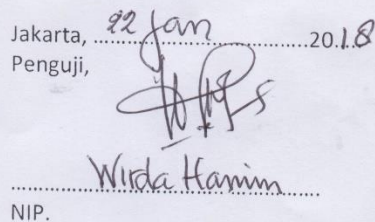 Jakarta, 22 Jan 2018
Penguji,
Wirda Hanim
NIP.